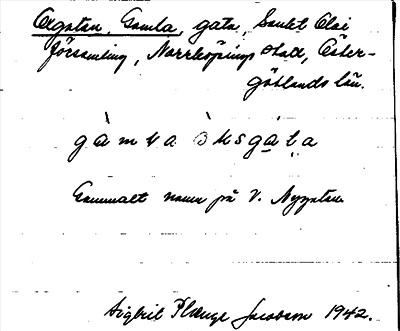 Oxgatan, Gamla, gata, Sankt Olai
församling, Norrköpings stad, Öster-
götlands län.
gàmla
Gammalt namn på V. Nygatan.
Sigbrit Plænge Jacobson 1942.